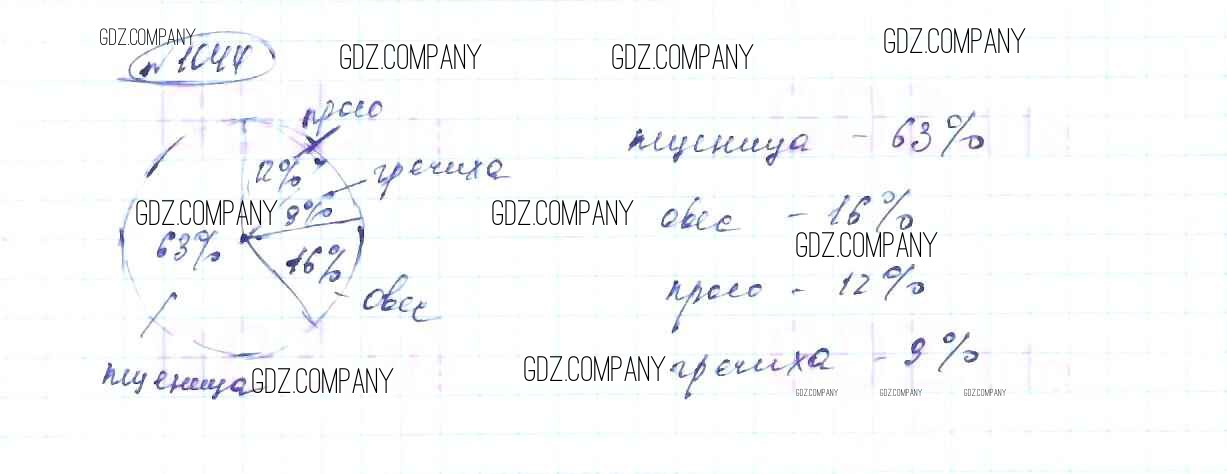 GDZ.COMPANY
№ 1044
GDZ.COMPANY
GDZ.COMPANY
GDZ.COMPANY
просо
12%
гречиха
9%
63%
16%
овес
пшеница
пшеница - 63%
GDZ.COMPANY
GDZ.COMPANY
овес - 16%
GDZ.COMPANY
просо - 12%
гречиха - 9%
GDZ.COMPANY
GDZ.COMPANY
GDZ.COMPANY
GDZ.COMPANY
GDZ.COMPANY